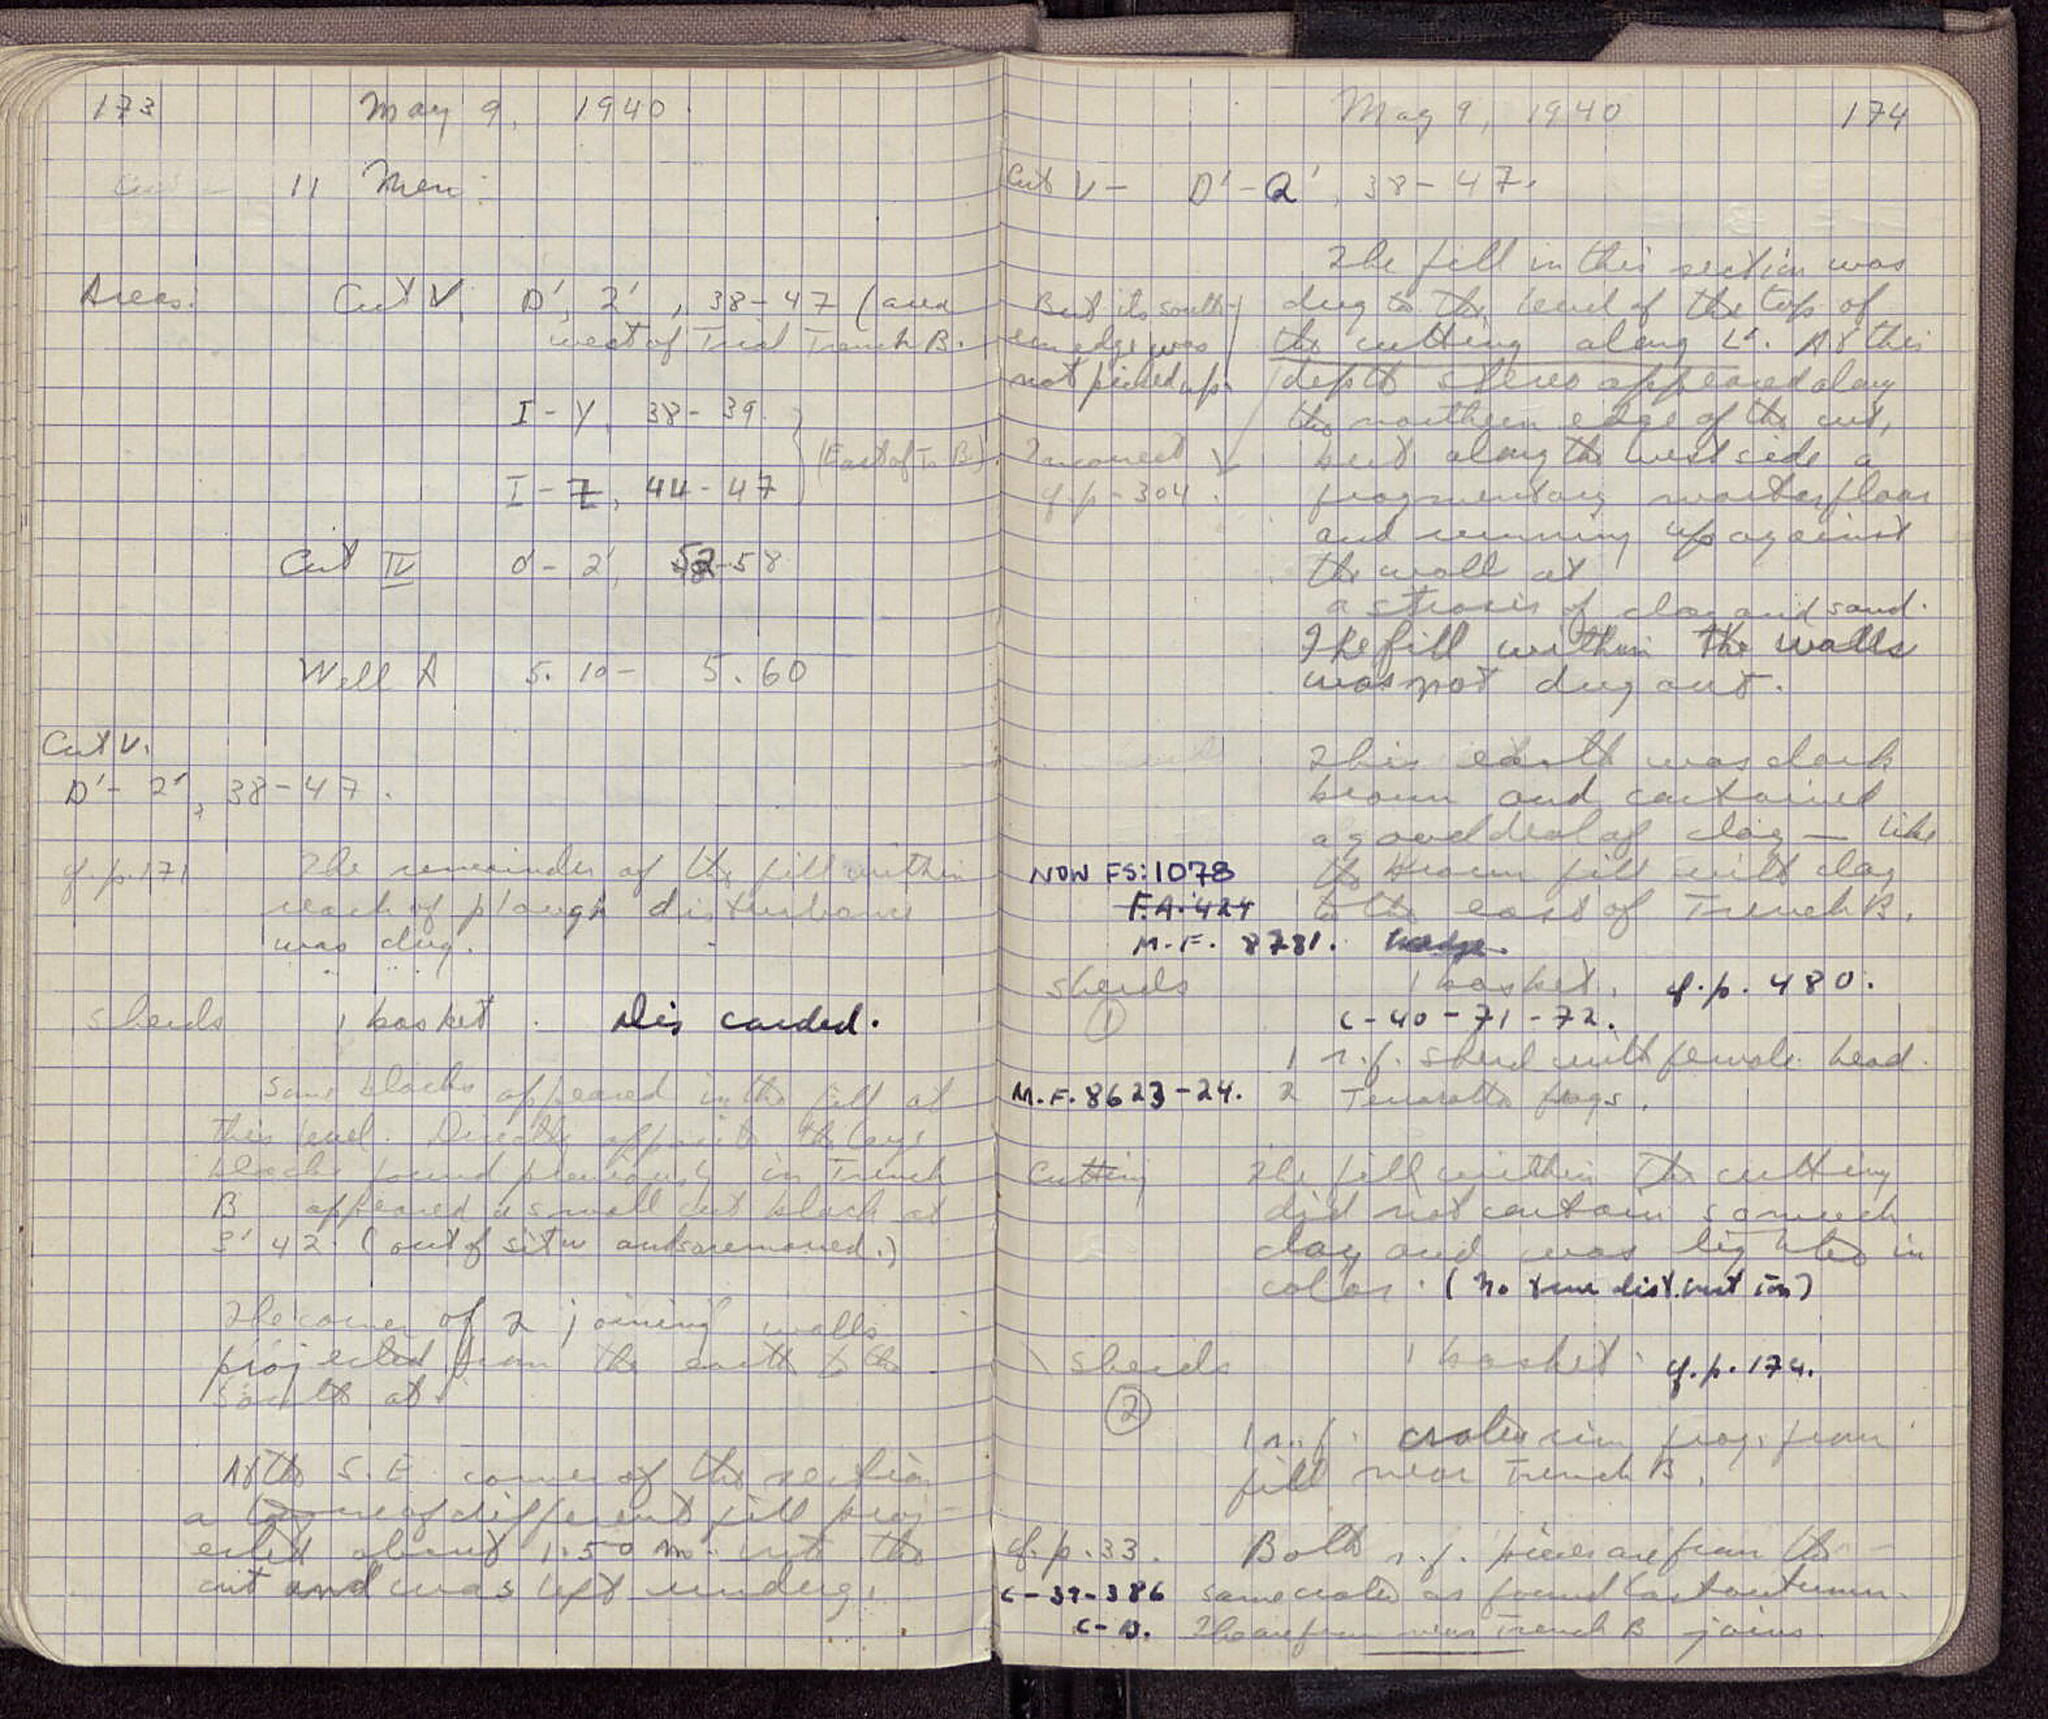 173 May 9, 1940.
11 Men:
Areas: Cut V, D', 2', 38-47 (and
west of Trial Trench B.
I-Y, 38-39.
(East of Tr. B).
I-Z, 44-47
Cut IV 0'-2', 52-58
Well A 5.10- 5.60
Cut V.
D'-2', 38-47.
cf. p. 171 The remainder of the fill within
reach of plough disturbance
was dug.
sherds 1 basket. Discarded.
Some blocks appeared in the fill at
this level. Directly opposite the large
blocks found previously in Trench
B appeared a small cut block at
3' 42. (out of situ and so removed.)
The corner of 2 joining walls
projected from the earth to the
south at.
At the S.E. corner of the section
a layer of different fill proj-
ected about 1.50 m. into the
cut and was left undug.
May 9, 1940 174
Cut V- D'-Q', 38-47.
The fill in this section was
dug to the level of the top of
the cutting along L'. At this
depth stereo appeared along
the northern edge of the cut,
but along the west side a
fragmentary mortar floor
and running up against
the wall at
a strosis of clay and sand.
The fill within the walls
was not dug out.
But its south-
ern edge was
not picked up.
Incorrect
cf. p. 304.
This earth was dark
brown and contained
a good deal of clay — like
the brown fill with clay
to the east of Trench B.
NOW FS:1078
F.A.424
M.F. 8781.
sherds 1 basket. cf. p. 480.
① C-40-71-72.
1 r.f. sherd with female head.
M.F. 8623-24. 2 Terracotta frags.
Cutting The fill within the cutting
did not contain so much
clay and was lighter in
color. (No true distinction)
sherds 1 basket. cf. p. 174.
②
1 r.f. crater rim frag. from
fill near Trench B.
cf. p. 33. Both r.f. pieces are from the
C-37-386 same crater as found last autumn.
The one from near Trench B joins.